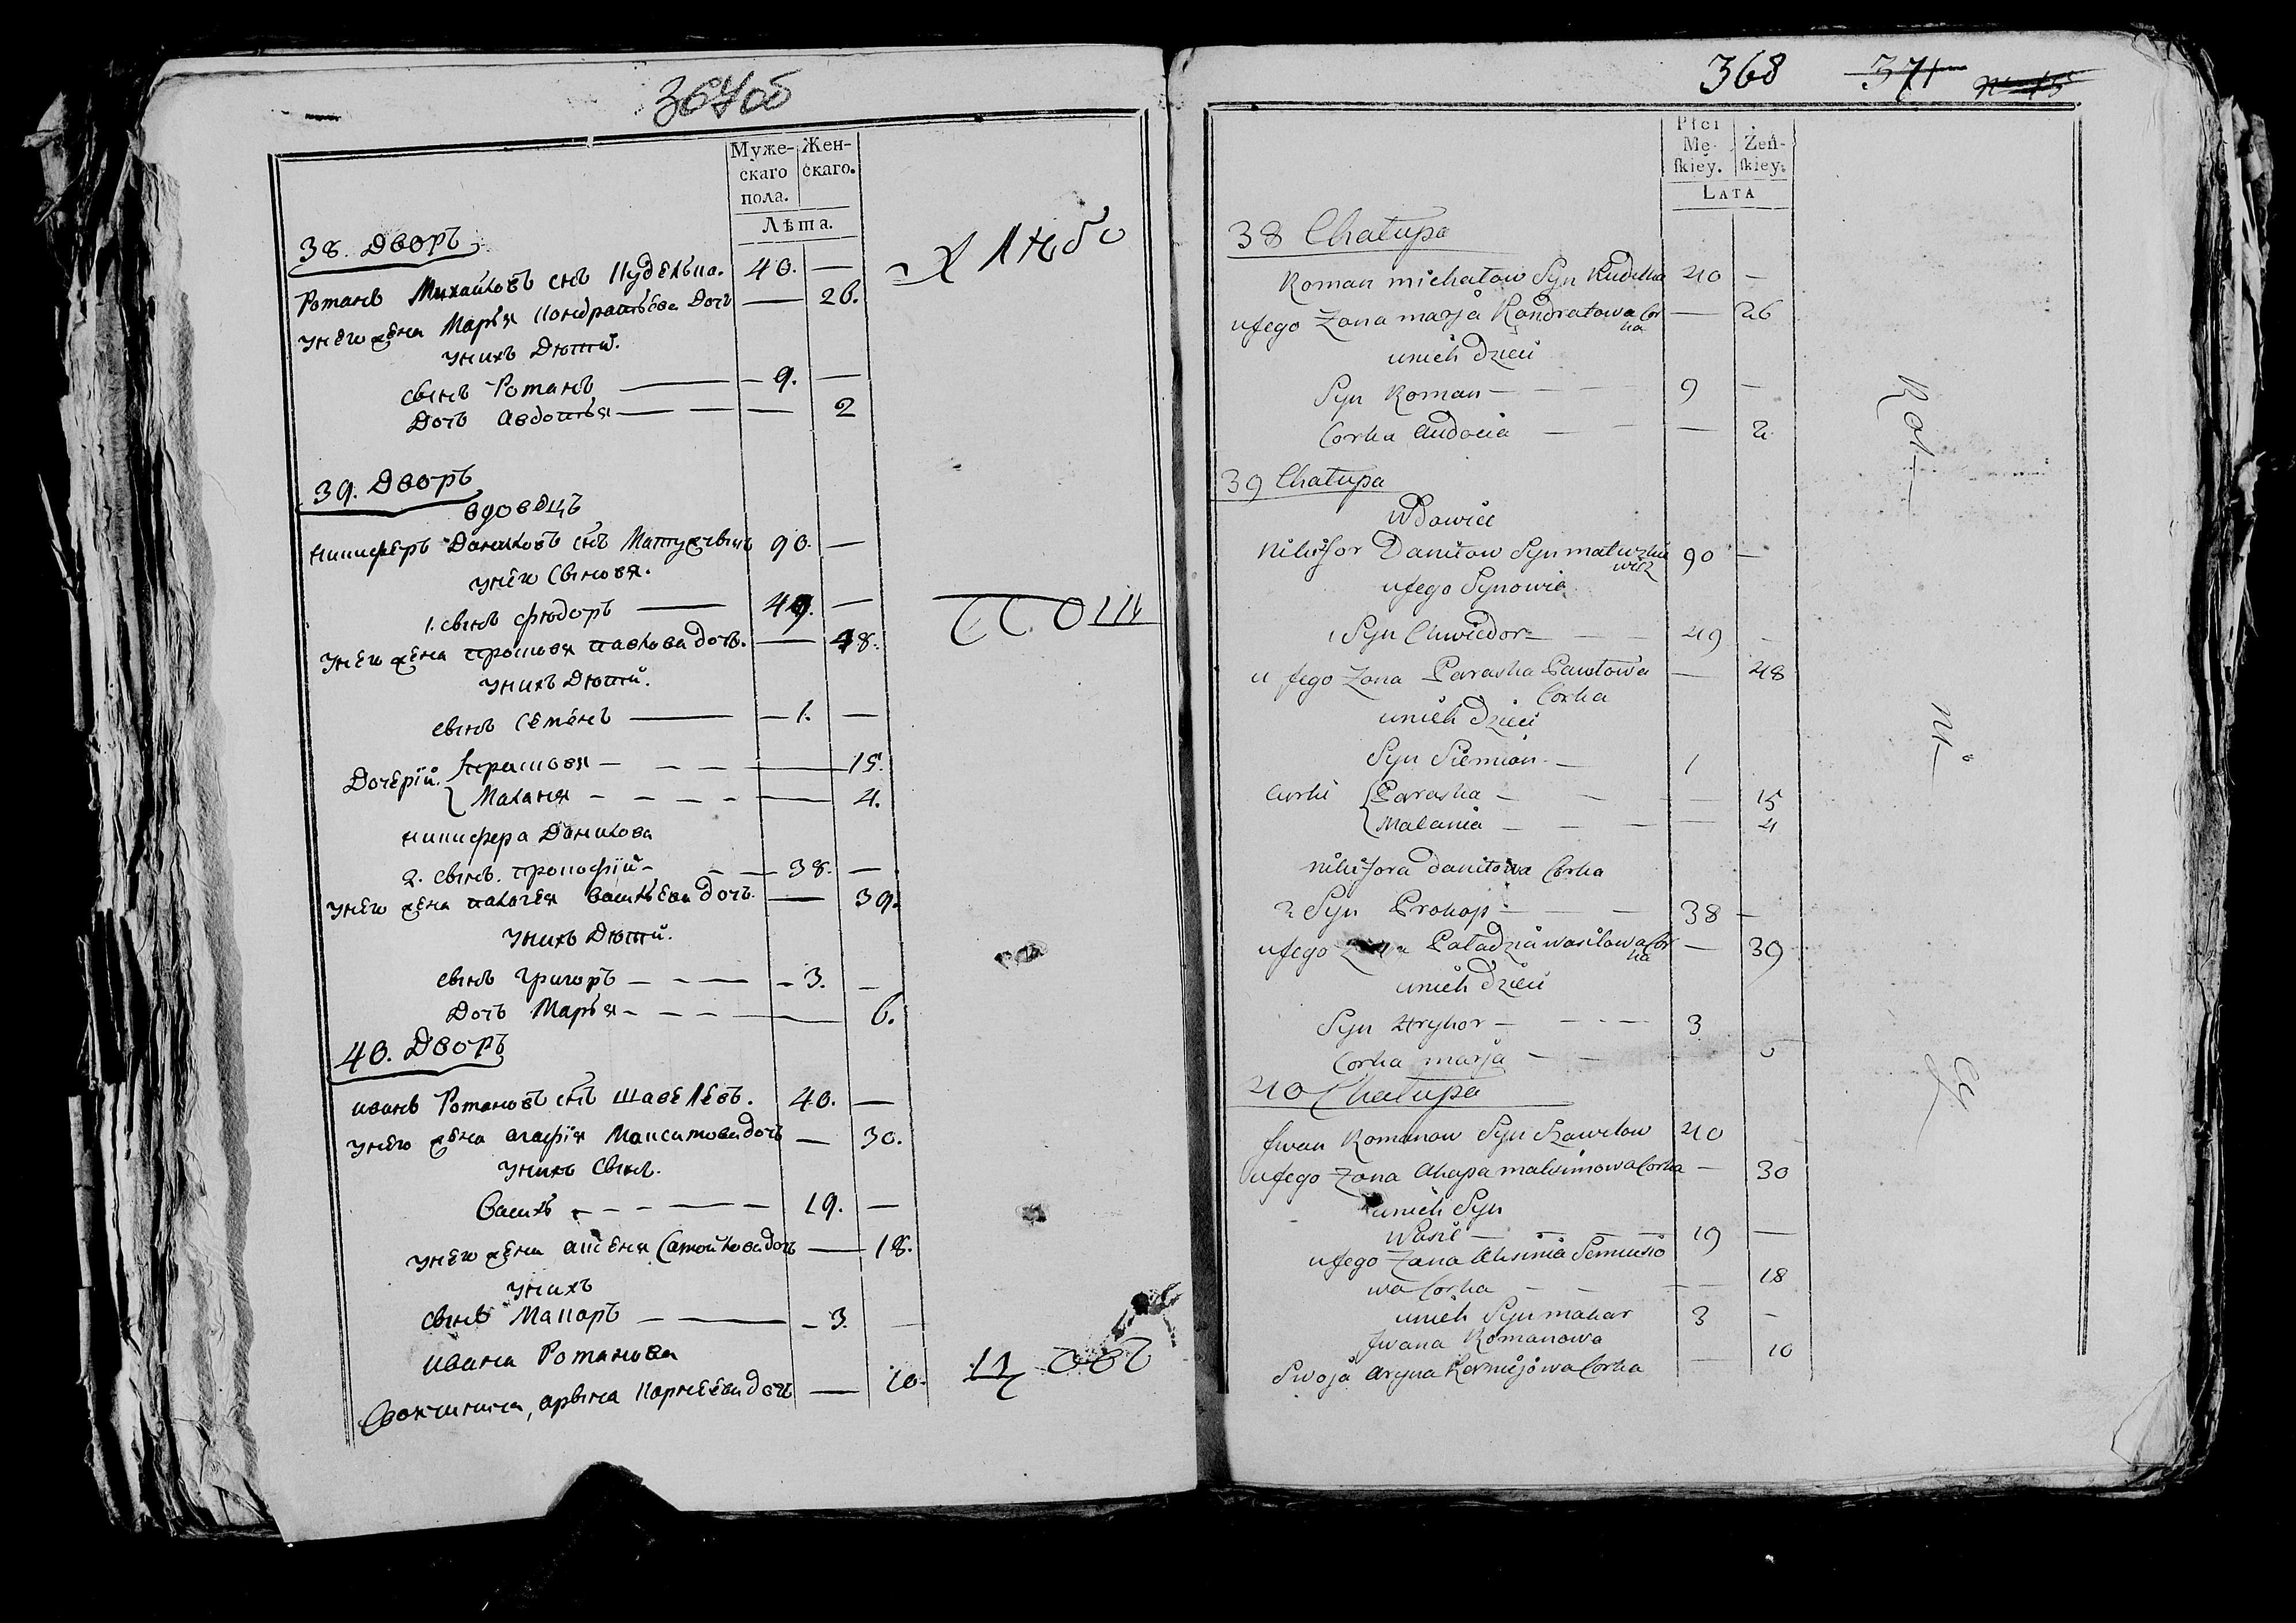 367об
Муже-скаго пола. Жен-скаго.
Лѣта.
38. Дворъ
Романъ Михайловъ снъ Кудѣлька. 40. —
унего жена Марья Кондратьева дочь — 26.
унихъ Дѣтй.
сынъ Романъ — 9. —
Дочь Авдотья — — 2
39. Дворъ
вдовецъ
никиферъ Даниловъ снъ Матужевичъ 90. —
унего сыновя.
1. сынъ фюдоръ — 49. —
унего жена прошовя павлова дочь. — 48.
унихъ Дѣтй.
сынъ семенъ — 1. —
Дочерїй. прашовя — — 15.
Маланя — — 4.
никифера Данилова
2. сынъ. прокофїй — 38. —
унего жена палагея василѣева дочь. — 39.
унихъ Дѣтй.
сынъ григоръ — 3. —
Дочь Марья — — 6.
40. Дворъ
иванъ Романовъ снъ шавелевъ. 40. —
унего жена агафїя Максимова дочь — 30.
унихъ сынъ.
василь — 19. —
унего жена аксеня Самойлова дочь — 18.
унихъ
сынъ Макаръ — 3. —
ивана Романова
Своячиница, арына Карнеева дочь — 10.
368 371
Płci Mę-ſkiey. Żeń-ſkiey.
LATA
38 Chałupa
Roman michałow Syn Kudelka 40 —
uJego Zona marja Kondratowa Corka — 26
unich dzieci
Syn Roman — 9 —
Corka Audocia — — 2
39 Chałupa
Wdowiec
Nikifor Daniłow Syn matuzkiewicz 90 —
uJego Synowie
1 Syn Chwiedor — 49 —
u Jego Zona Paraska Pawłowa Corka — 48
unich dzieci
Syn Siemion — 1
Curki Paraska — — 15
Malania — — 4
Nikifora daniłowa Corka
2 Syn Prokop — 38 —
uJego Zona Paładzia wasilowa Corka — 39
unich dzieci
Syn Hryhor — 3
Corka marja — 6
40 Chałupa
Jwan Romanow Syn Szawelow 40
uJego Zona Ahapa maksimowa Corka — 30
unich Syn
Wasil — 19 —
uJego Zona Aksinia Samusiowa Corka — 18
unich Syn makar 3 —
Jwana Romanowa
Swoja Aryna Karniejowa Corka — 10